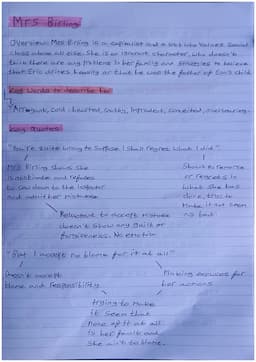 Mrs Birling
Overview: Mrs Birling is a capitalist and a snob who values social
class above all else. She is an ignorant character, who doesn't
think there are any problems in her family and struggles to believe
that Eric drinks heavily or that he was the father of Eva's child
Key words to describe her
Arrogant, Cold-hearted, snobby, Imprudent, conceited, overbearing.
Key quotes
"You're quite wrong to suppose I shall regret what I did"
Mrs Birling shows she
is obstinate and refuses
to bow down to the inspector
and admit her mistakes
Shows no remorse
or regrets in
what she has
done, tries to
make it out seem
not bad
Reluctant to accept mistakes
doesn't show any guilt or
forgiveness. No emotion
"But I accept no blame for it at all"
Doesn't accept
blame and responsibility
Making excuses for
her actions
trying to make
it seem that
none of it at all
is her fault and
she isn't to blame.